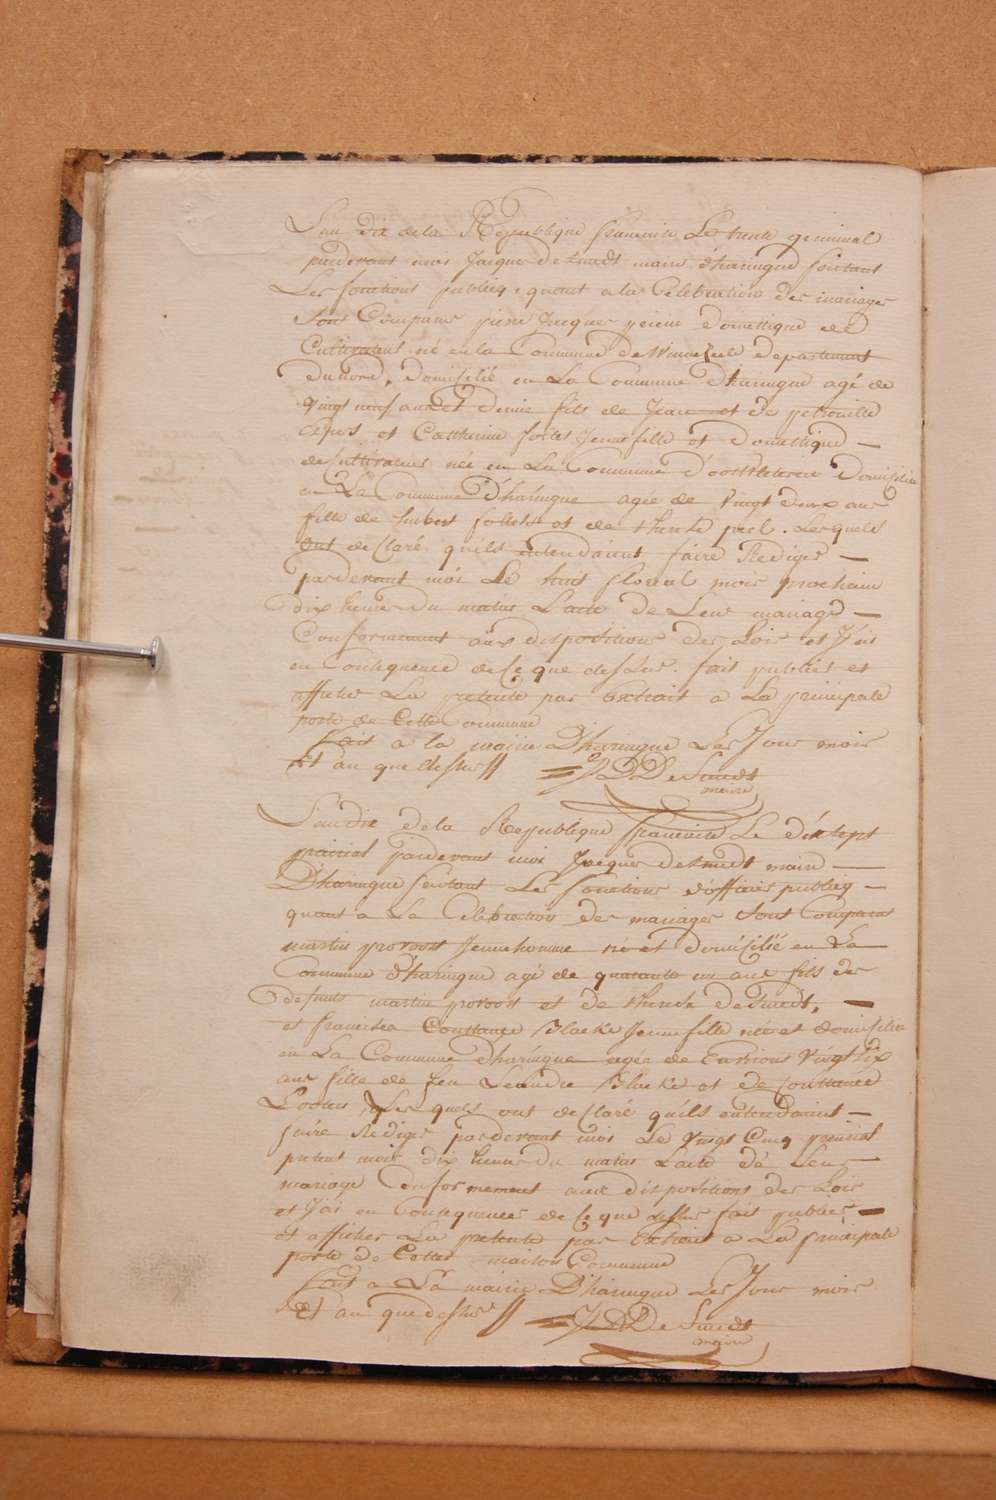 L'an dix de la République francaise Le trente germinal
pardevant moi Jacques Desmedt maire d'haringue faisant
Les fonctions publiq. quant a la Célébration des mariages
Sont Comparus pierre Jacques domestique de
Cultivateur né en la Commune de Winnezeele departement
Du nord, domicilié en La Commune D'haringue agé de
vingt neuf ans et Demie fils de Jean et de petronille
et Catherine follet Jeune fille et Domestique —
de Cultivateur née en La Commune d'oostvleteren Domicilie
en La Commune D'haringue agée de vingt deux ans
fille de hubert follet et de therese peel. Lesquels
Ont declaré qu'ils entendaient faire Rediger —
pardevant moi Le huit floreal mois prochain
dix heure Du matin L'acte de Leur mariage —
Conformement aux dispositions des Lois et J'ai
en Consequence de Ce que dessus fait publier et
afficher La presente par Extrait a La principale
porte de Cette Commune
fait a la mairie D'haringue Les Jour mois
Et an que dessus JDDeSmedt
maire
L'an dix de la République francaise Le dix sept
prairial pardevant moi Jacques Desmedt maire —
D'haringue faisant Les fonctions d'officier publiq —
quant a La Celebration des mariages Sont Comparus
martin provoost Jeune homme né et Domicilié en La
Commune d'haringue agé de quarante un ans fils de
defunts martin provoost et de therese deSmedt, —
et francisca Constance Blacke Jeune fille née et domicilie
en La Commune d'haringue agée de Environs vingt dix
ans fille de feu Leandre Blacke et de Constance
Lesquels ont declaré qu'ils entendaient —
faire Rediger pardevant moi Le vingt Cinq prairial
présent mois dix heure Du matin L'acte dé Leur
mariage Conformement aux dispositions des Lois
et J'ai en Consequences de Ce que dessus fait publier —
et afficher La presente par Extrait a La principale
porte de Cette maison Commune
fait a La mairie D'haringue Les Jour mois
Et an que dessus JDDeSmedt
maire